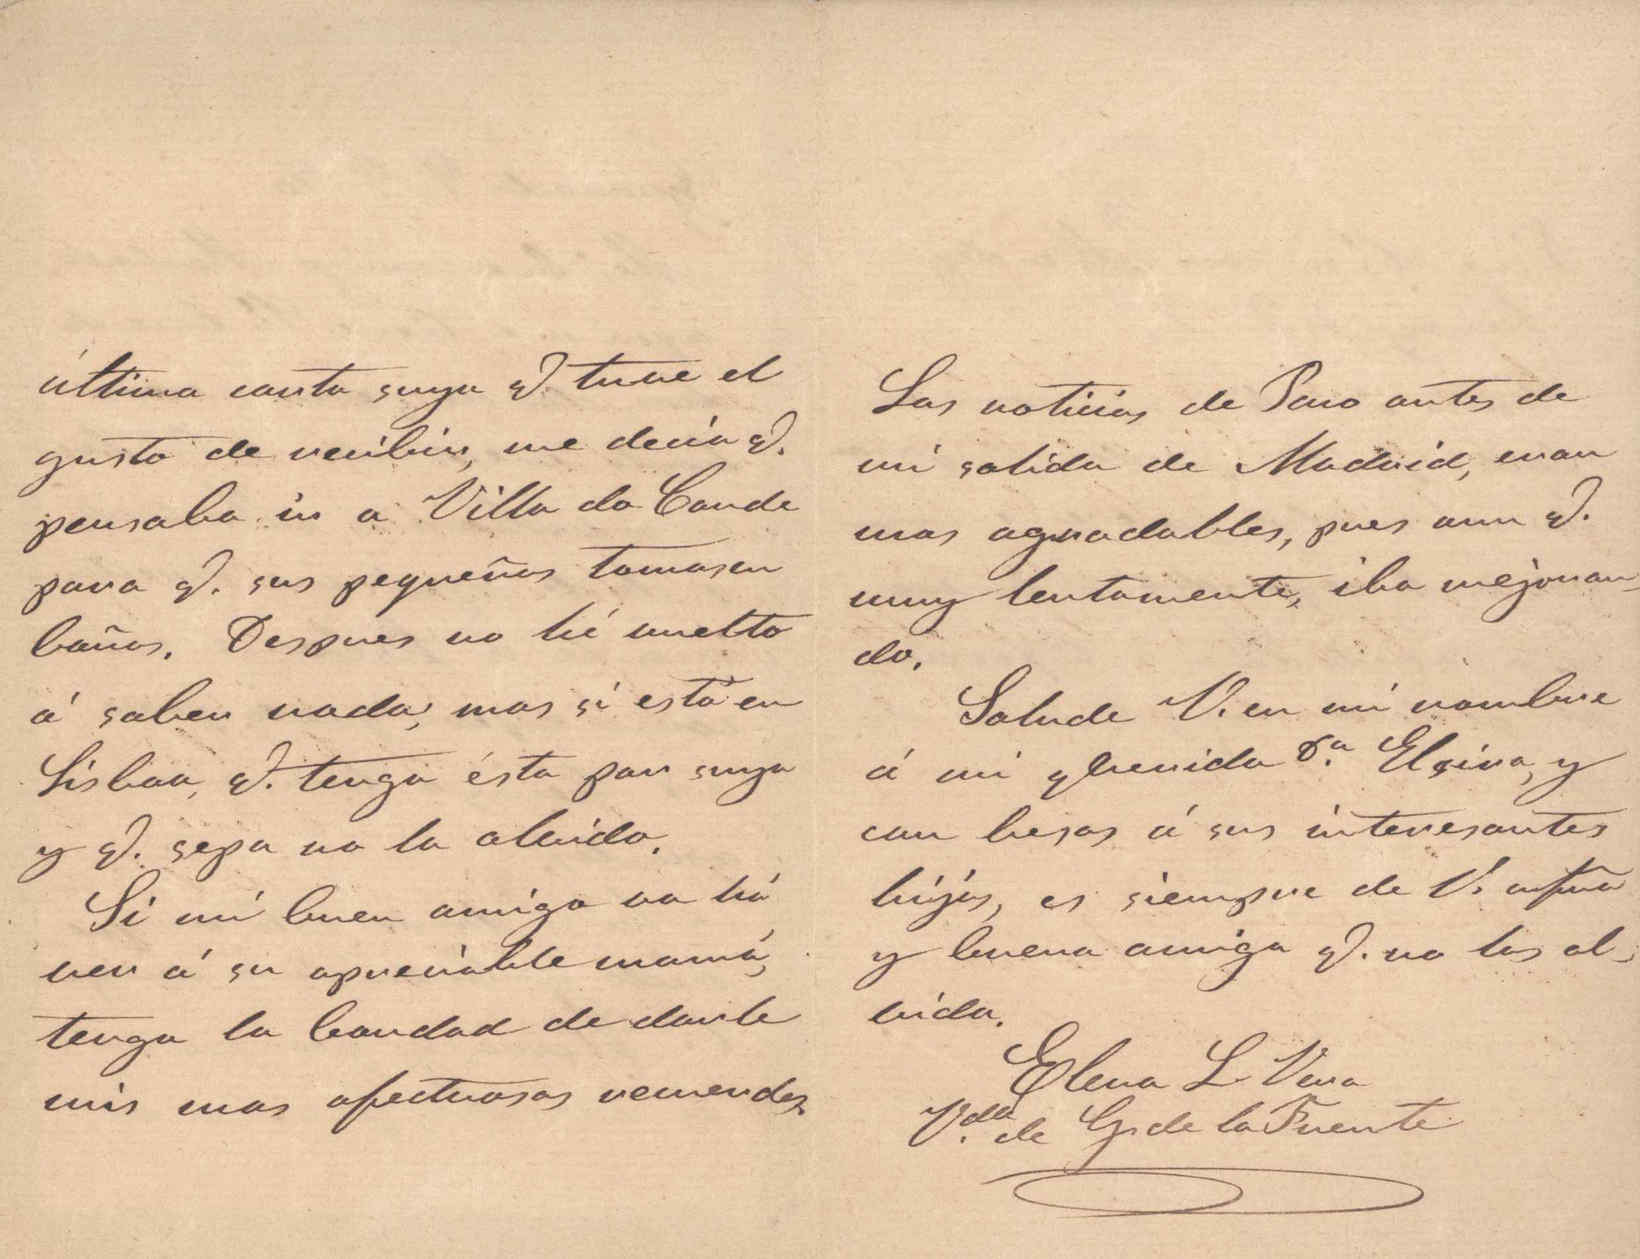 última carta suya q. tuve el
gusto de recibir, me decia q.
pensaba ir a Villa do Conde
para q. sus pequeños tomasen
baños. Despues no hé vuelto
á saber nada; mas si está en
Lisboa, q. tenga ésta por suya
y q. sepa no la olvido.
Si mi buen amigo va há
ver á su apreciable mamá,
tenga la bondad de darle
mis mas afectuosos recuerdos.
Las noticias de Paco antes de
mi salida de Madrid, eran
mas agradables, pues aun q.
muy lentamente, iba mejoran-
do.
Salude V. en mi nombre
á mi querida D.ª Elvira, y
con besos á sus interesantes
hijos, es siempre de V. afma
y buena amiga q. no los ol-
vida.
Elena L Vera
V.da de G. de la Fuente